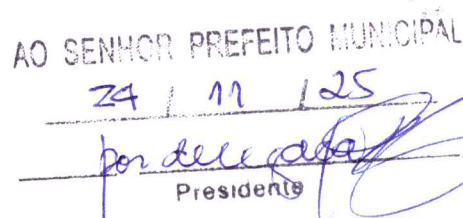 AO SENHOR PREFEITO MUNICIPAL
24 / 11 / 25
por delegação
Presidente